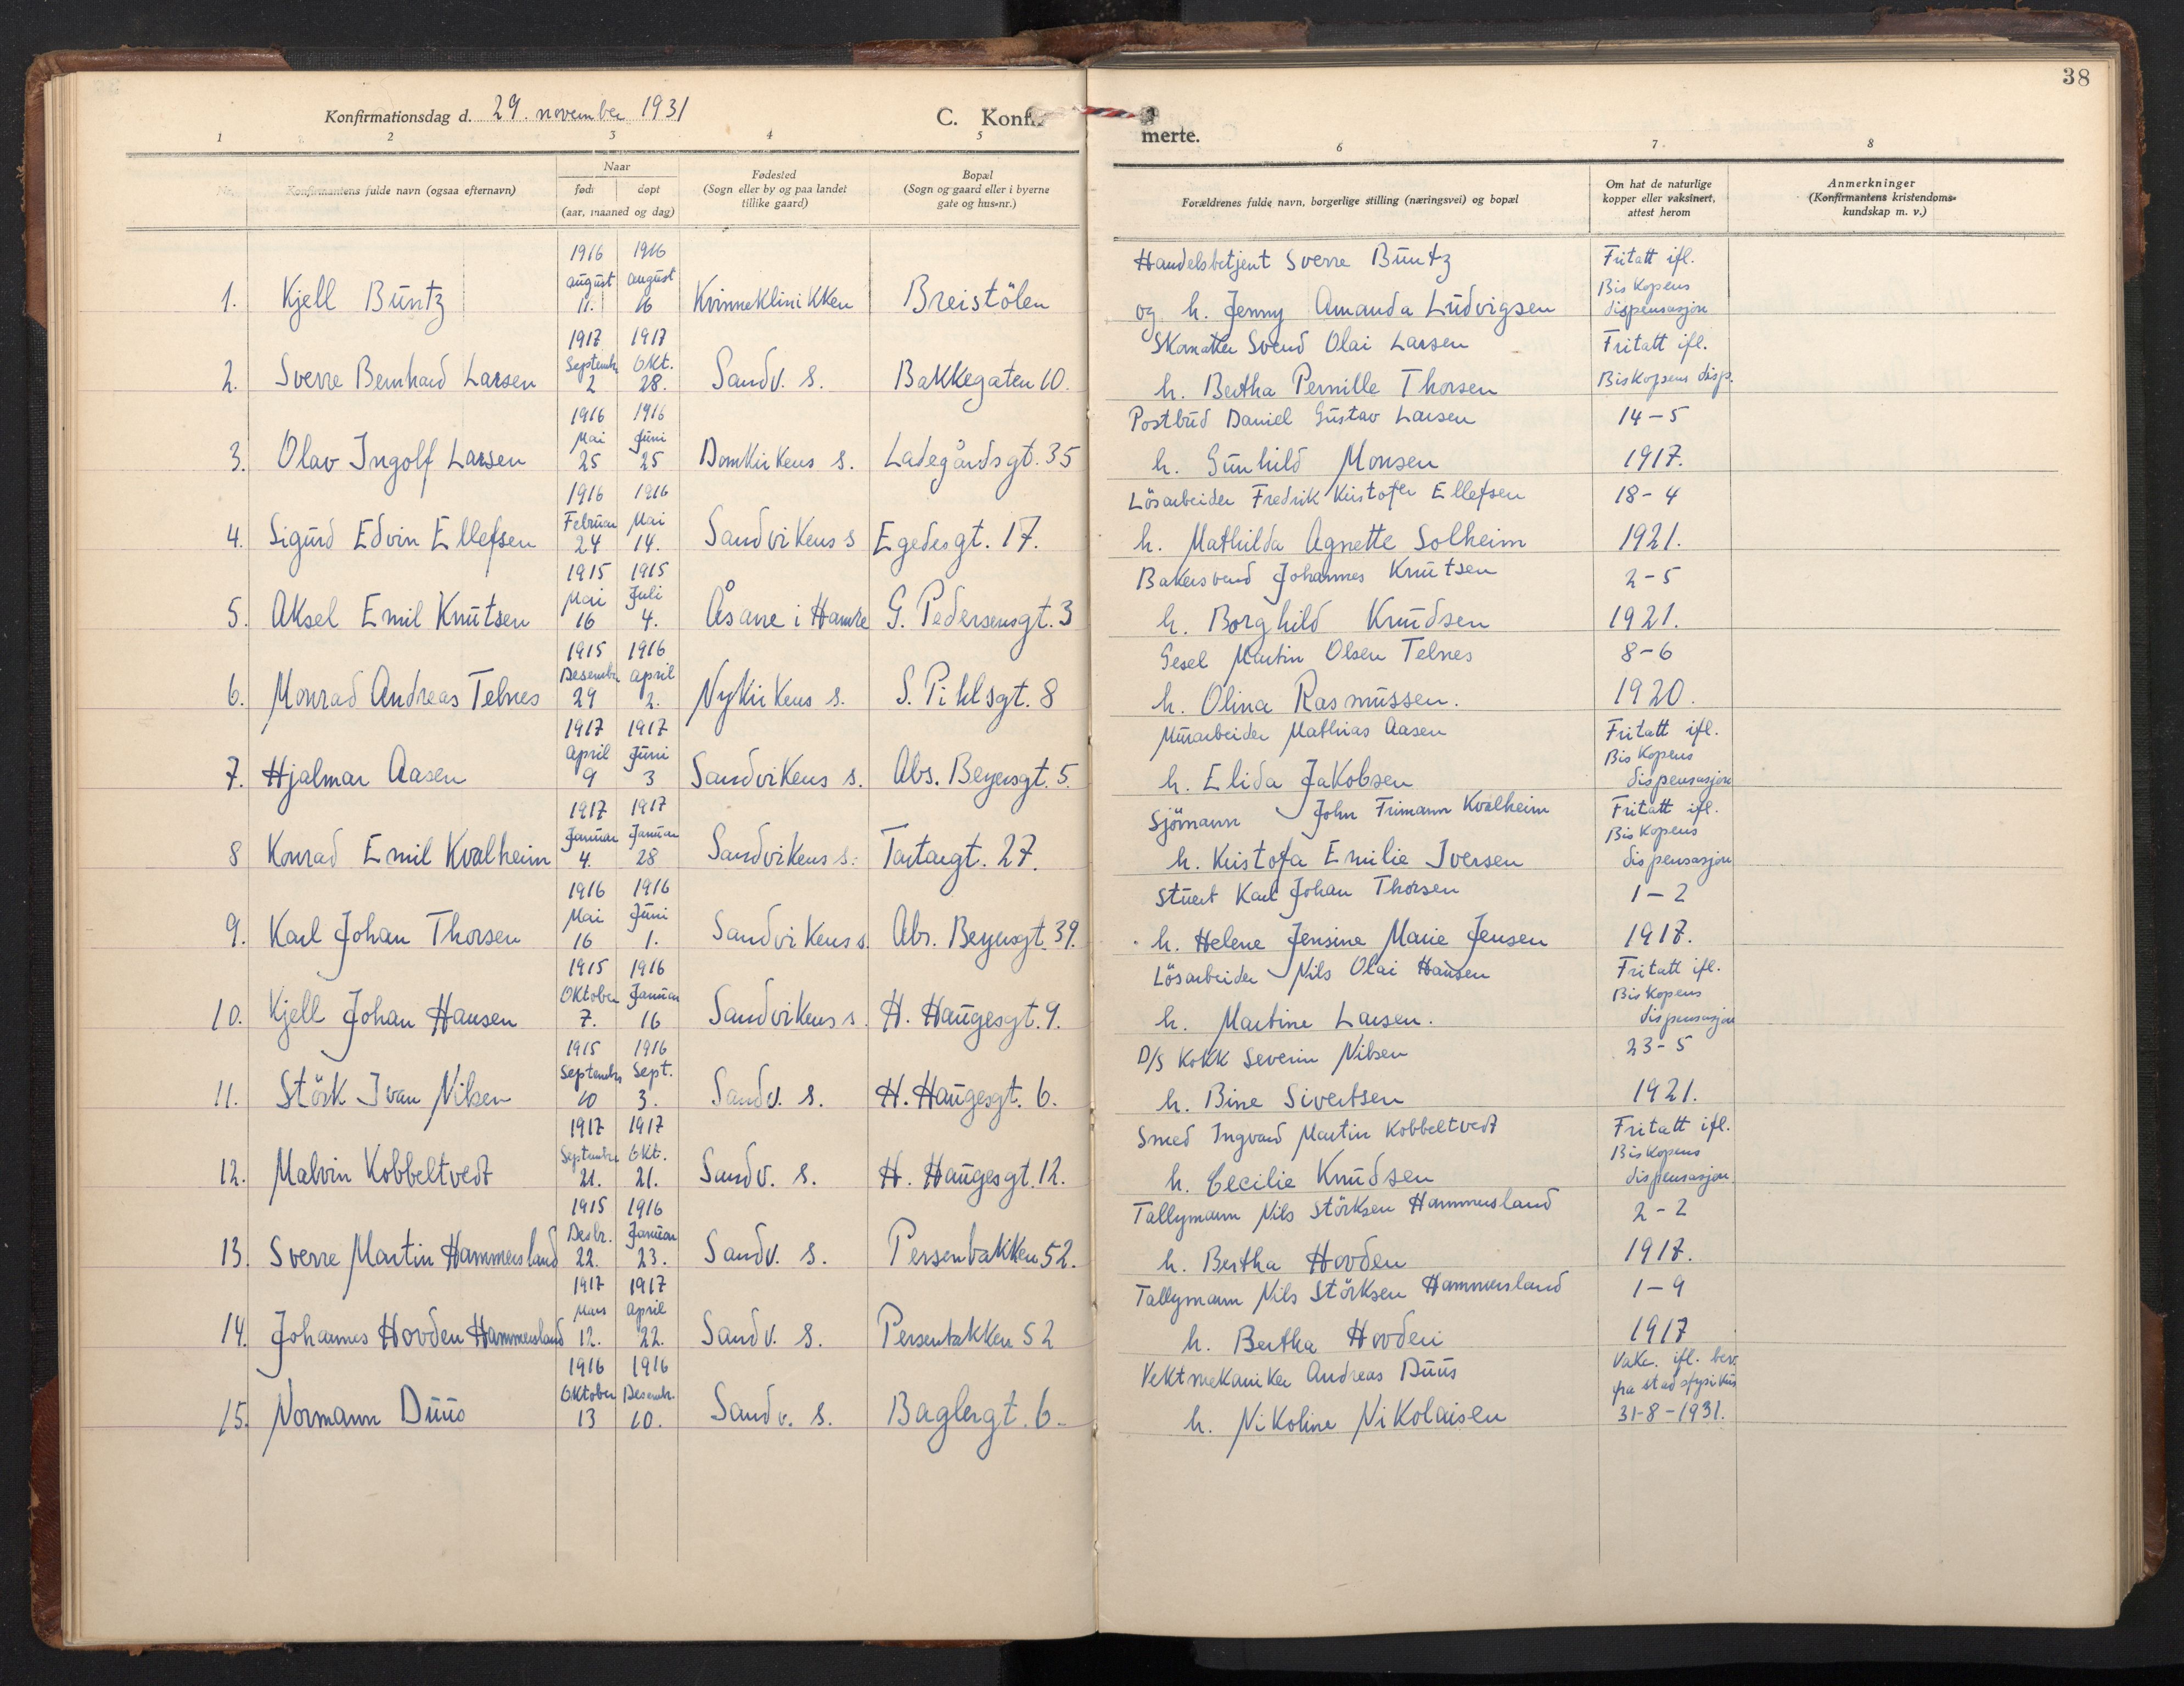 38
Konfirmationsdag d. 29. november 1931
C. Konfir
merte.
1 2 3 4 5 6 7 8
Nr. Konfirmantens fulde navn (ogsaa efternavn)
Naar
født døpt
(aar, maaned og dag)
Fødested
(Sogn eller by og paa landet
tillike gaard)
Bopæl
(Sogn og gaard eller i byerne
gate og hus-nr.)
Forældrenes fulde navn, borgerlige stilling (næringsvei) og bopæl
Om hat de naturlige
kopper eller vaksinert,
attest herom
Anmerkninger
(Konfirmantens kristendoms-
kundskap m. v.)
1916 1916 Handelsbetjent Sverre Büntz Fritatt ifl.
august august Biskopens
1. Kjell Büntz 11. 16 Kvinneklinikken Breistölen og h. Jenny Amanda Ludvigsen dispensasjon
1917 1917 Skomaker Svend Olai Larsen Fritatt ifl.
Septembr Okt.
2. Sverre Bernhard Larsen 2 28. Sandv. s. Bakkegaten 10. h. Bertha Pernille Thorsen Biskopens disp.
1916 1916 Postbud Daniel Gustav Larsen 14-5
Mai Juni
3. Olav Ingolf Larsen 25 25 Domkirkens s. Ladegårdsgt. 35 h. Gunhild Monsen 1917.
1916 1916 Lösarbeider Fredrik Kristofer Ellefsen 18-4
Februar Mai
4. Sigurd Edvin Ellefsen 24 14. Sandvikens s Egedesgt. 17. h. Mathilda Agnette Solheim 1921.
1915 1915 Bakersvend Johannes Knutsen 2-5
Mai Juli
5. Aksel Emil Knutsen 16 4. Åsane i Hamre G. Pedersensgt. 3 h. Borghild Knudsen 1921.
1915 1916 Gesel Martin Olsen Telnes 8-6
Desembr april
6. Monrad Andreas Telnes 29 2. Nykirkens s. S. Pihlsgt. 8 h. Olina Rasmussen. 1920.
1917 1917 Murarbeider Mathias Aasen Fritatt ifl.
april Juni Biskopens
7. Hjalmar Aasen 9 3 Sandvikens s. Abs. Beyersgt. 5. h. Elida Jakobsen dispensasjon
1917 1917 Sjömann John Trimann Kvalheim Fritatt ifl.
Januar Januar Biskopens
8 Konrad Emil Kvalheim 4. 28 Sandvikens s. Tartargt. 27. h. Kristofa Emilie Iversen dispensasjon
1916 1916 Stuert Karl Johan Thorsen 1-2
Mai Juni
9. Karl Johan Thorsen 16 1. Sandvikens s. Abs. Beyersgt. 39. h. Helene Jensine Marie Jensen 1917.
1915 1916 Lösarbeider Nils Olai Hansen Fritatt ifl.
Oktober Januar Biskopens
10. Kjell Johan Hansen 7. 16 Sandvikens s. H. Haugesgt. 9. h. Martine Larsen. dispensasjon
1915 1916 D/S Kokk Severin Nilsen 23-5
Septembr Sept.
11. Störk Ivan Nilsen 10 3. Sandv. s. H. Haugesgt. 6. h. Bine Sivertsen 1921.
1917 1917 Smed Ingvard Martin Kobbeltvedt Fritatt ifl.
Septembr Okt. Biskopens
12. Malvin Kobbeltvedt 21. 21. Sandv. s. H. Haugesgt. 12. h. Cecilie Knudsen dispensasjon
1915 1916 Tallymann Nils Störksen Hammersland 2-2
Desbr. Januar
13. Sverre Martin Hammersland 22. 23. Sandv. s. Persenbakken 52. h. Bertha Hovden 1917.
1917 1917 Tallymann Nils Störksen Hammersland 1-9
Mars april
14. Johannes Hovden Hammersland 12. 22. Sandv. s. Persenbakken 52 h. Bertha Hovden 1917
1916 1916 Vektmekaniker Andreas Duus Vakc. ifl. bev.
Oktober Desembr. fra stadsfysikus
15. Normann Duus 13 10. Sandv. s. Baglergt. 6. h. Nikoline Nikolaisen 31-8-1931.